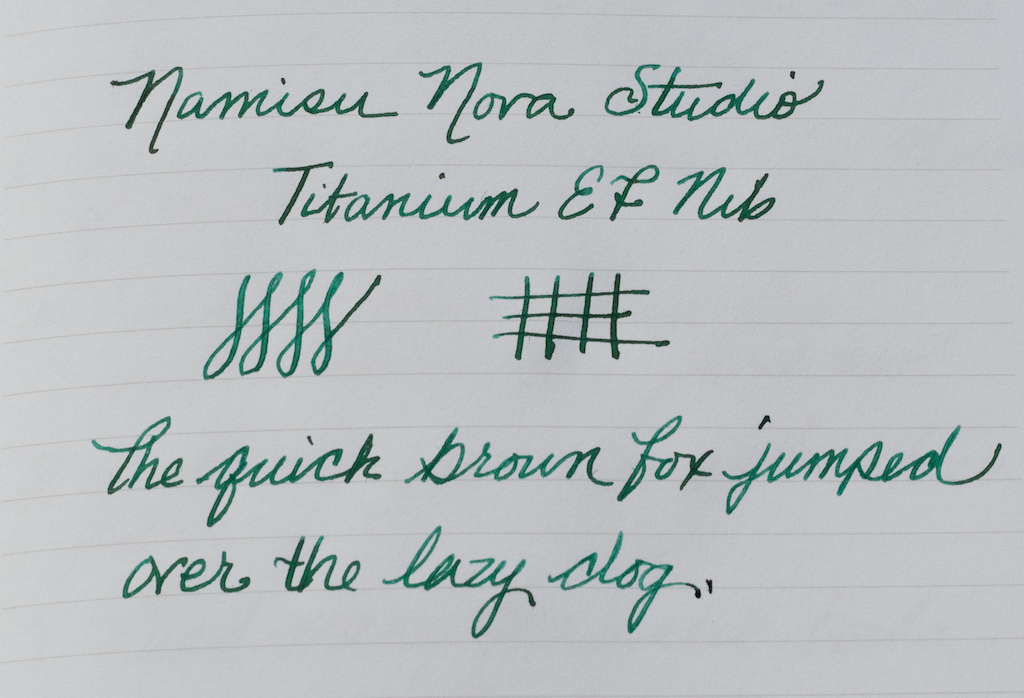 Namisu Nova Studio
Titanium EF Nib
The quick brown fox jumped
over the lazy dog.